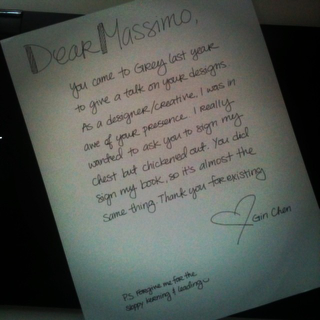 Dear Massimo,
You came to Grey last year
to give a talk on your designs.
As a designer/creative, I was in
awe of your presence. I really
wanted to ask you to sign my
chest but chickened out. You did
sign my book, so it's almost the
same thing. Thank you for existing
Gin Chen
P.S. me for the
sappy &